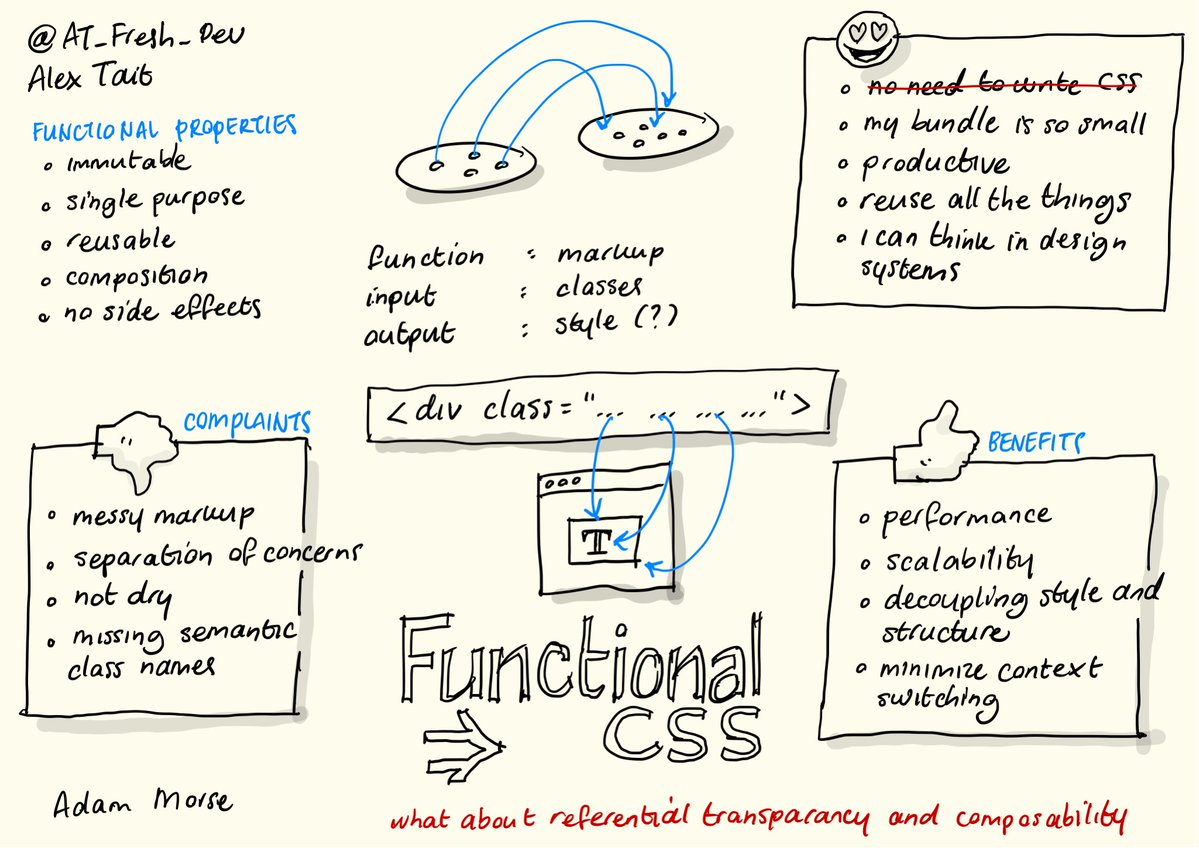 @AT_Fresh_Dev
Alex Tait
FUNCTIONAL PROPERTIES
• immutable
• single purpose
• reusable
• composition
• no side effects
function : markup
input : classes
output : style (?)
• no need to write CSS
• my bundle is so small
• productive
• reuse all the things
• I can think in design
systems
<div class="... ... ... ...">
T
COMPLAINTS
• messy markup
• separation of concerns
• not dry
• missing semantic
class names
BENEFITS
• performance
• scalability
• decoupling style and
structure
• minimize context
switching
Functional
CSS
Adam Morse
what about referential transparancy and composability